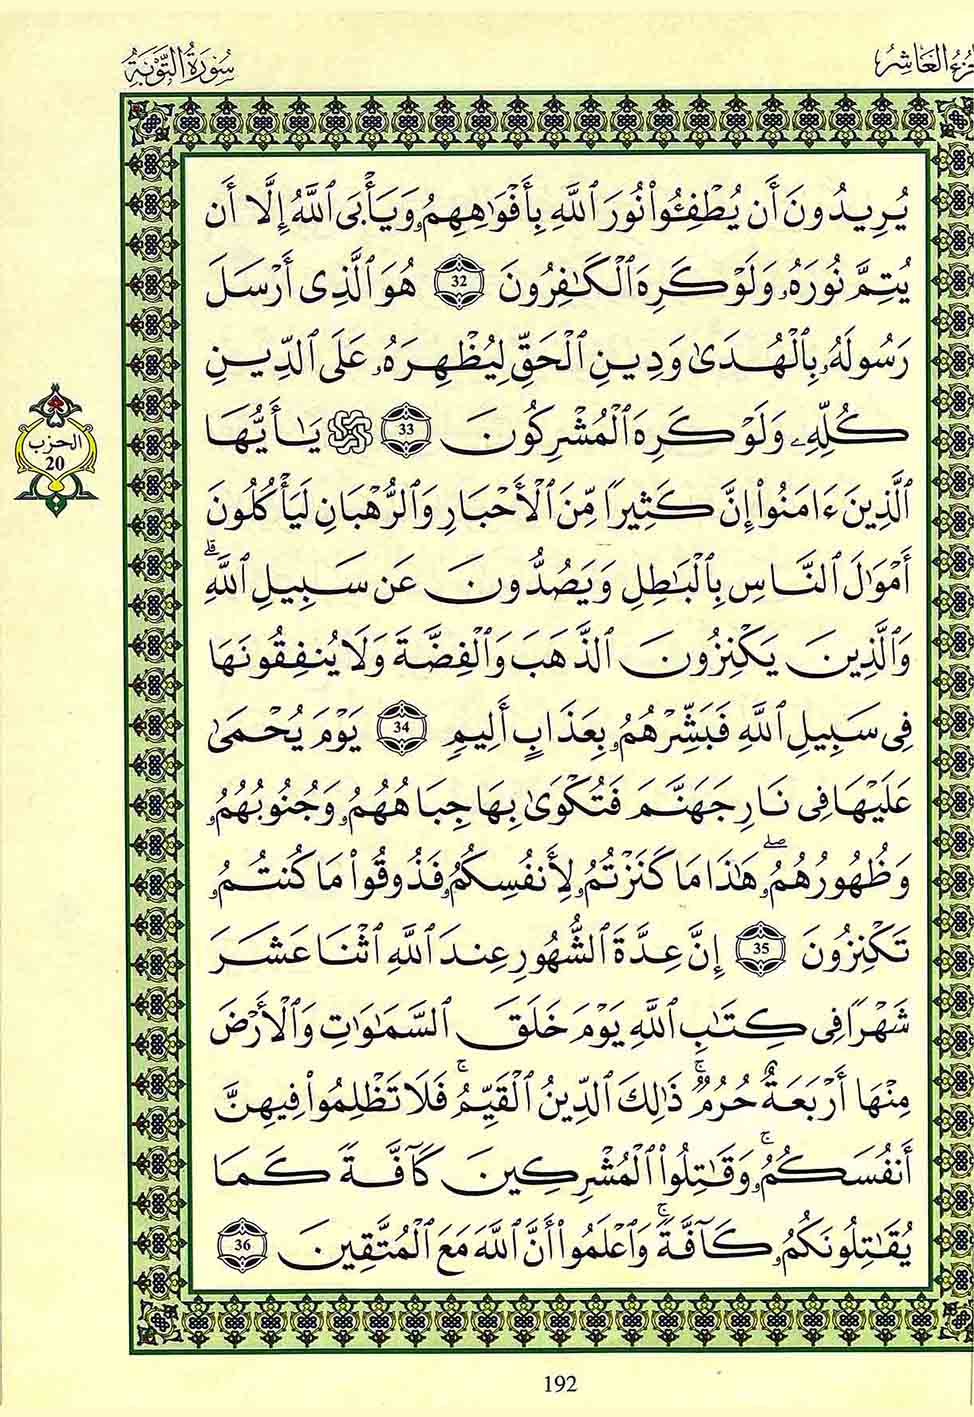 الجزء العاشر
سُورَةُ التَّوْبَةِ
يُرِيدُونَ أَن يُطْفِـُٔوا۟ نُورَ ٱللَّهِ بِأَفْوَٰهِهِمُۥ وَيَأْبَى ٱللَّهُ إِلَّا أَن
يُتِمَّ نُورَهُۥ وَلَوْ كَرِهَ ٱلْكَٰفِرُونَ 32 هُوَ ٱلَّذِى أَرْسَلَ
رَسُولَهُۥ بِٱلْهُدَىٰ وَدِينِ ٱلْحَقِّ لِيُظْهِرَهُۥ عَلَى ٱلدِّينِ
كُلِّهِۦ وَلَوْ كَرِهَ ٱلْمُشْرِكُونَ 33 ۞ يَٰأَيُّهَا
ٱلَّذِينَ ءَامَنُوا۟ إِنَّ كَثِيرًا مِّنَ ٱلْأَحْبَارِ وَٱلرُّهْبَانِ لَيَأْكُلُونَ
أَمْوَٰلَ ٱلنَّاسِ بِٱلْبَٰطِلِ وَيَصُدُّونَ عَن سَبِيلِ ٱللَّهِۗ
وَٱلَّذِينَ يَكْنِزُونَ ٱلذَّهَبَ وَٱلْفِضَّةَ وَلَا يُنفِقُونَهَا
فِى سَبِيلِ ٱللَّهِ فَبَشِّرْهُمُۥ بِعَذَابٍ أَلِيمٍ 34 يَوْمَ يُحْمَىٰ
عَلَيْهَا فِى نَارِ جَهَنَّمَ فَتُكْوَىٰ بِهَا جِبَاهُهُمُۥ وَجُنُوبُهُمُۥ
وَظُهُورُهُمُۥۖ هَٰذَا مَا كَنَزْتُمُۥ لِأَنفُسِكُمُۥ فَذُوقُوا۟ مَا كُنتُمُۥ
تَكْنِزُونَ 35 إِنَّ عِدَّةَ ٱلشُّهُورِ عِندَ ٱللَّهِ ٱثْنَا عَشَرَ
شَهْرًا فِى كِتَٰبِ ٱللَّهِ يَوْمَ خَلَقَ ٱلسَّمَٰوَٰتِ وَٱلْأَرْضَ
مِنْهَا أَرْبَعَةٌ حُرُمٌۚ ذَٰلِكَ ٱلدِّينُ ٱلْقَيِّمُۚ فَلَا تَظْلِمُوا۟ فِيهِنَّ
أَنفُسَكُمُۥۚ وَقَٰتِلُوا۟ ٱلْمُشْرِكِينَ كَآفَّةً كَمَا
يُقَٰتِلُونَكُمُۥ كَآفَّةًۚ وَٱعْلَمُوا۟ أَنَّ ٱللَّهَ مَعَ ٱلْمُتَّقِينَ 36
الحزب
20
192